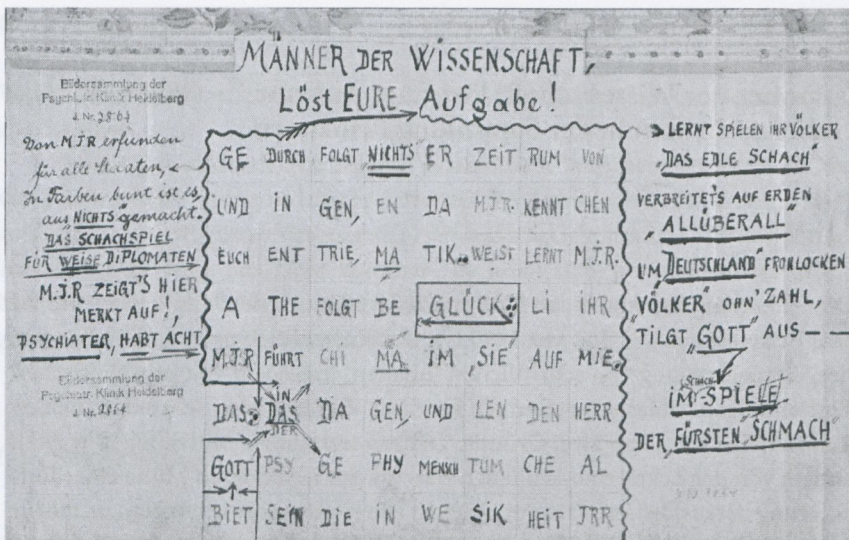 MÄNNER DER WISSENSCHAFT,
Löst EURE Aufgabe!
Bildersammlung der
Psychiatr. Klinik Heidelberg
J. Nr. 2864
Von M.J.R erfunden
für alle Staaten,
In Farben bunt ist es,
aus "NICHTS" gemacht.
DAS SCHACHSPIEL
FÜR WEISE DIPLOMATEN
M.J.R ZEIGT'S HIER
MERKT AUF!,
PSYCHIATER, HABT ACHT
Bildersammlung der
Psychiatr. Klinik Heidelberg
J. Nr. 2864
GE DURCH FOLGT NICHTS ER ZEIT RUM VON
UND IN GEN, EN DA M.J.R. KENNT CHEN
EUCH ENT TRIE, MA TIK WEIST LERNT M.J.R.
A THE FOLGT BE GLÜCK LI IHR
M.J.R FÜHRT CHI MA IM "SIE" AUF MIE
IN
DAS DAS DA GEN, UND LEN DEN HERR
DER
GOTT PSY GE PHY MENSCH TUM CHE AL
BIET SEIN DIE IN WE SIK HEIT JRR
LERNT SPIELEN IHR VÖLKER
"DAS EDLE SCHACH"
VERBREITET'S AUF ERDEN
"ALLÜBERALL"
UM "DEUTSCHLAND" FROHLOCKEN
"VÖLKER" OHN' ZAHL,
TILGT "GOTT" AUS — —
SCHACH
IM-SPIELE
DER "FÜRSTEN" SCHMACH"